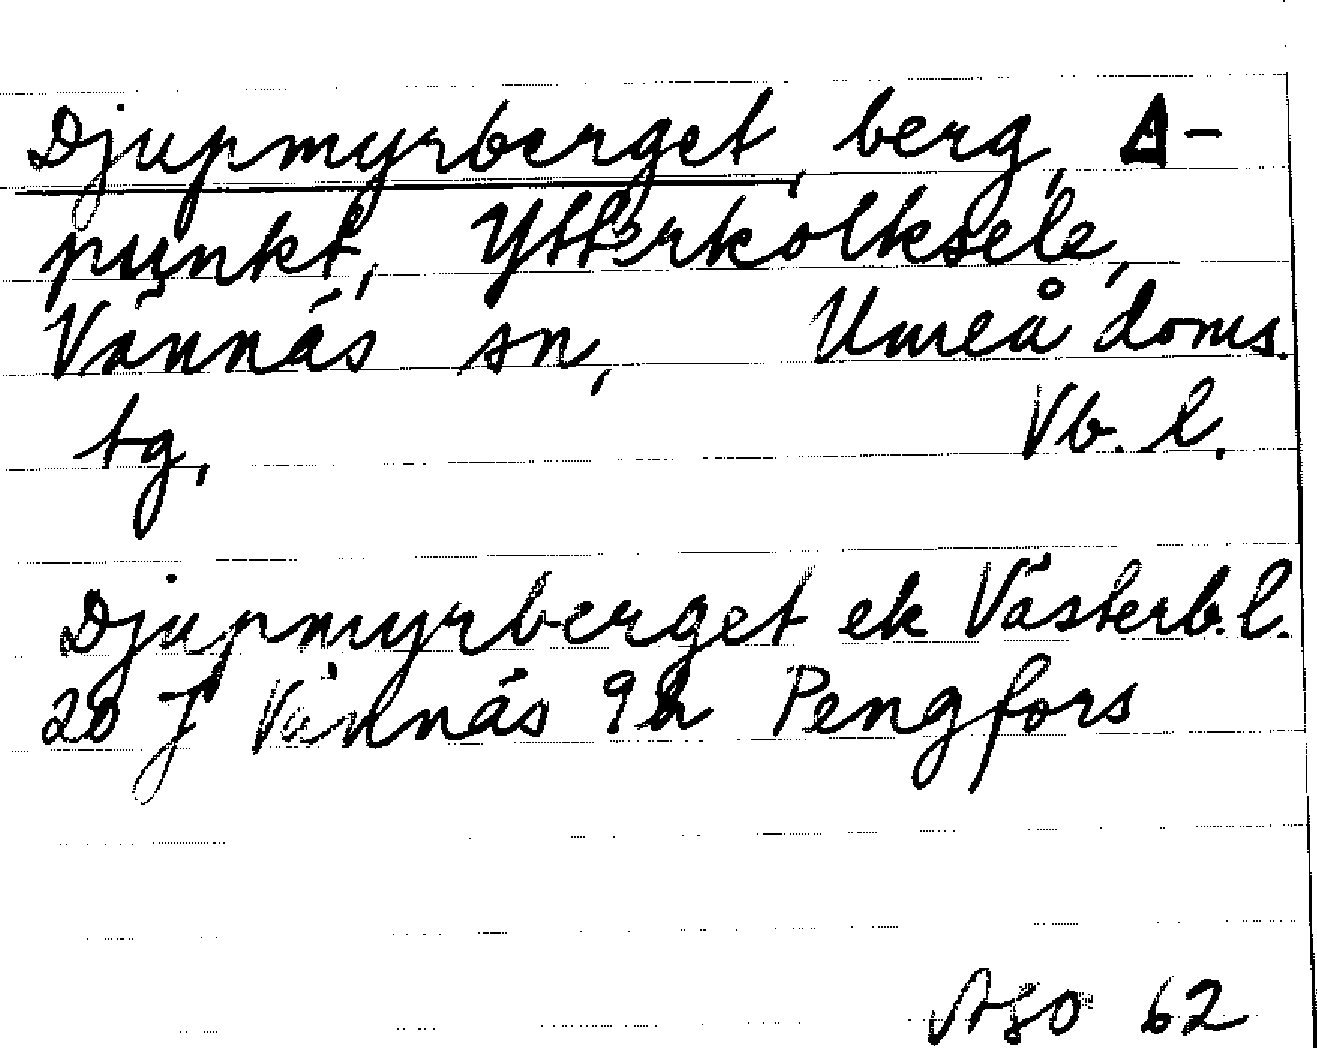 Djupmyrberget, berg, Δ-
punkt, Ytterkolksele,
Vännäs sn, Umeå doms.
tg, Vb. l.
Djupmyrberget ek Västerb.l.
20 J Vännäs 9h Pengfors
62